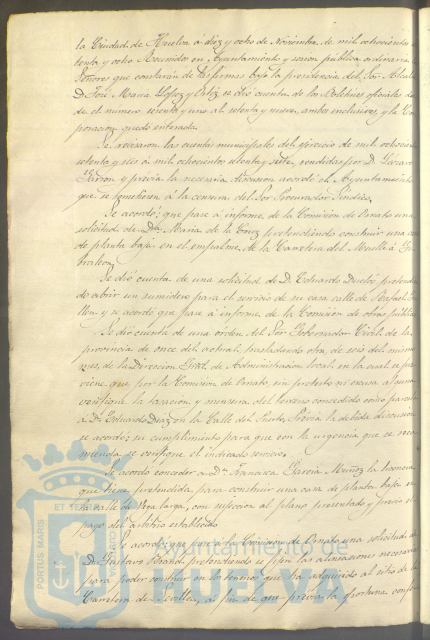 la Ciudad de Huelva á diez y ocho de Noviembre de mil ochocientos
tenta y ocho Reunidos en Ayuntamiento y sesion publica ordinaria
Señores que constarán de las firmas bajo la presidencia del Sor. Alcalde
D. José Maria Lopez y Ortiz se dió cuenta de los Boletines oficiales des
de el numero sesenta y uno al setenta y nueve, ambos inclusives, y la Cor
poracion quedó enterada.
Se revisaron las cuentas municipales del ejercicio de mil ochocientos
setenta y seis á mil ochocientos setenta y siete, rendidas por D. Lazaro
Garzon y previa la necesaria discusion acordó el Ayuntamiento
que se sometiesen á la censura del Sor Procurador Sindico.
Se acordó: que pase á informe de la Comision de Ornato una
solicitud de Da. Maria de la Cruz pretendiendo construir una casa
de planta baja en el empalme de la Carretera del Muelle á Gi
braleon.
Se dió cuenta de una solicitud de D. Eduardo pretendien
do abrir un sumidero para el servicio de su casa calle de Rafael Gui
llen y se acordó que pase á informe de la Comision de obras publicas
Se dió cuenta de una orden del Sor Gobernador Civil de la
provincia de once del actual, trasladando otra de seis del mismo
mes, de la Direccion Gral. de Administracion local, en la cual se pre
viene que por la Comision de Ornato, sin pretesto ni escusa alguna
verifique la tasacion y mensura del terreno concedido como parcela
á Dn. Eduardo Diaz en la Calle del Puerto. Prévia la debida discusion
se acordó; su cumplimiento para que con la urgencia que se reco
mienda se verifique el indicado servicio.
Se acordó conceder á Da. Francisca Garcia Muñoz la licencia
que tiene pretendida para construir una casa de planta baja en
la calle de Vega larga, con sujecion al plano presentado y previo el
pago del arbitrio establecido
Se acordó: que pase á la Comision de Ornato una solicitud de
D. Gustavo Brandt pretendiendo se fijen las alineaciones necesarias
para poder construir en los terrenos que ha adquirido al sitio de la
Carretera de Sevilla, al fin de que previa la oportuna
PORTUS MARIS ET TERRAE CUSTODIA
Ayuntamiento de
HUELVA